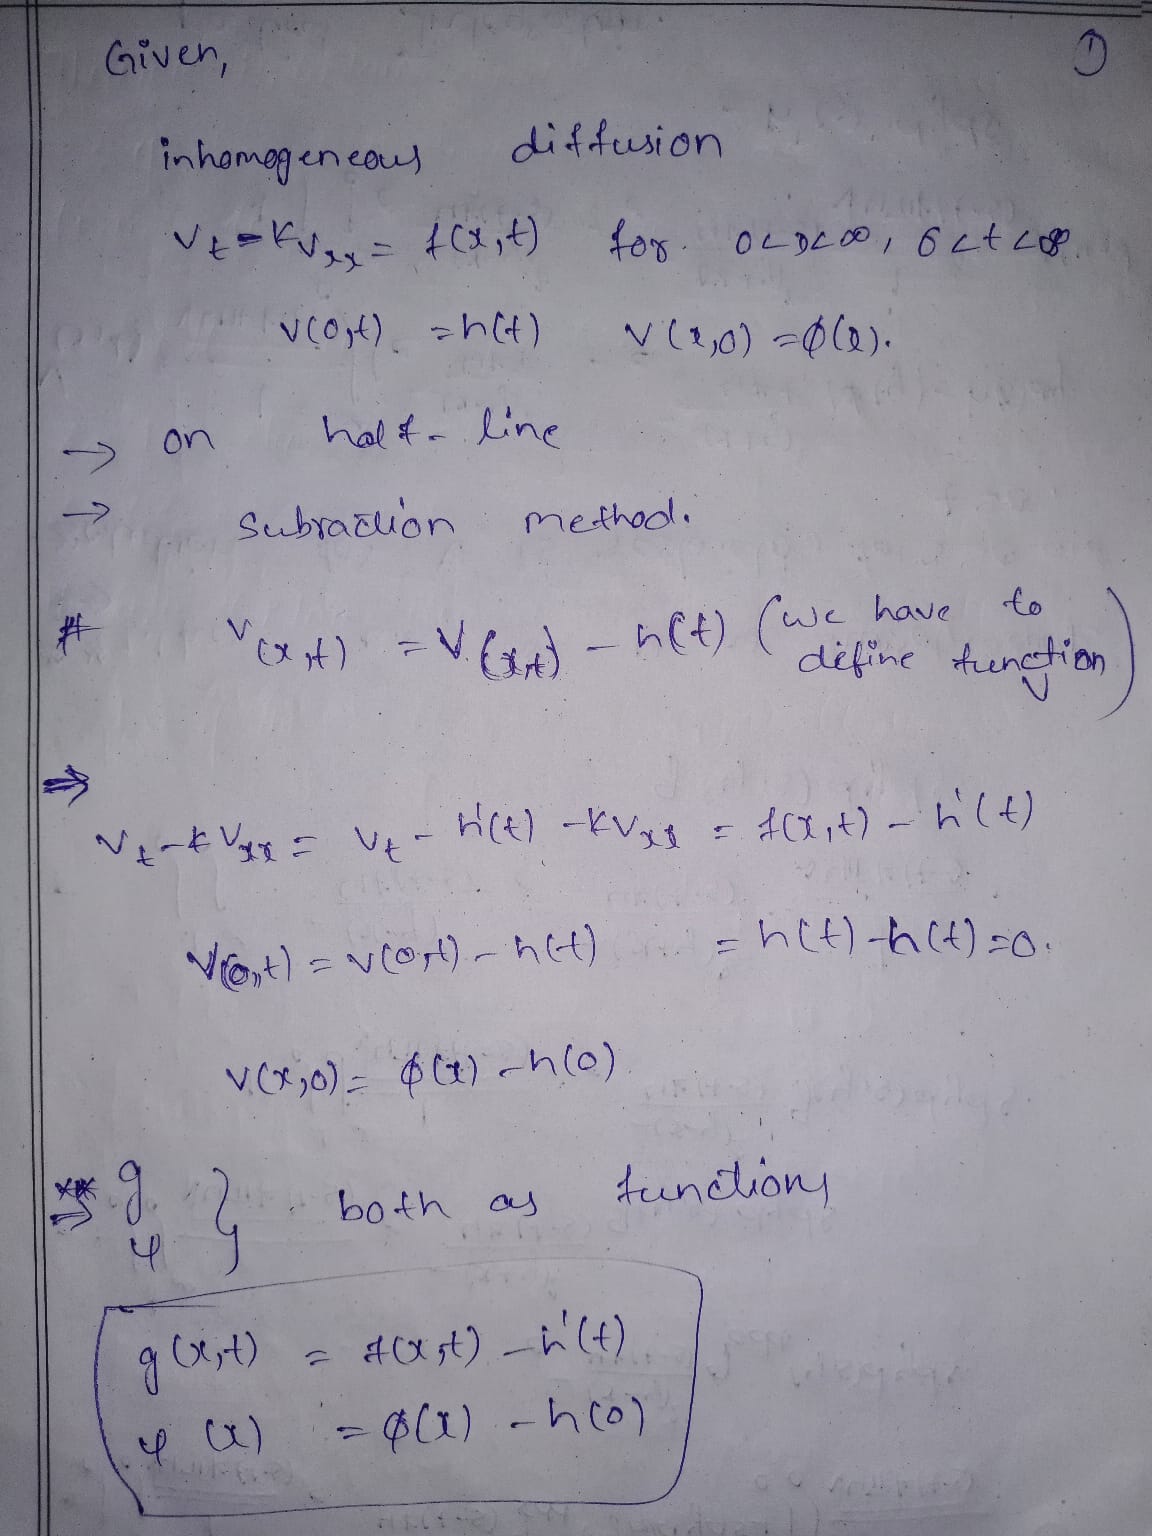 Given,
①
inhomogeneous diffusion
v_t = kv_xx = f(x,t) for 0<x<∞, 0<t<∞.
v(0,t) = h(t) v(x,0) = ϕ(x).
→ on half-line
→ Subraction method.
# v(x,t) = V(x,t) - h(t) (we have to define function)
⇒
v_t - kV_xx = v_t - h'(t) - kV_xx = f(x,t) - h'(t)
V(0,t) = v(0,t) - h(t) = h(t) - h(t) = 0.
v(x,0) = ϕ(x) - h(0)
g
φ } both as functions
g(x,t) = f(x,t) - h'(t)
φ(x) = ϕ(x) - h(0)